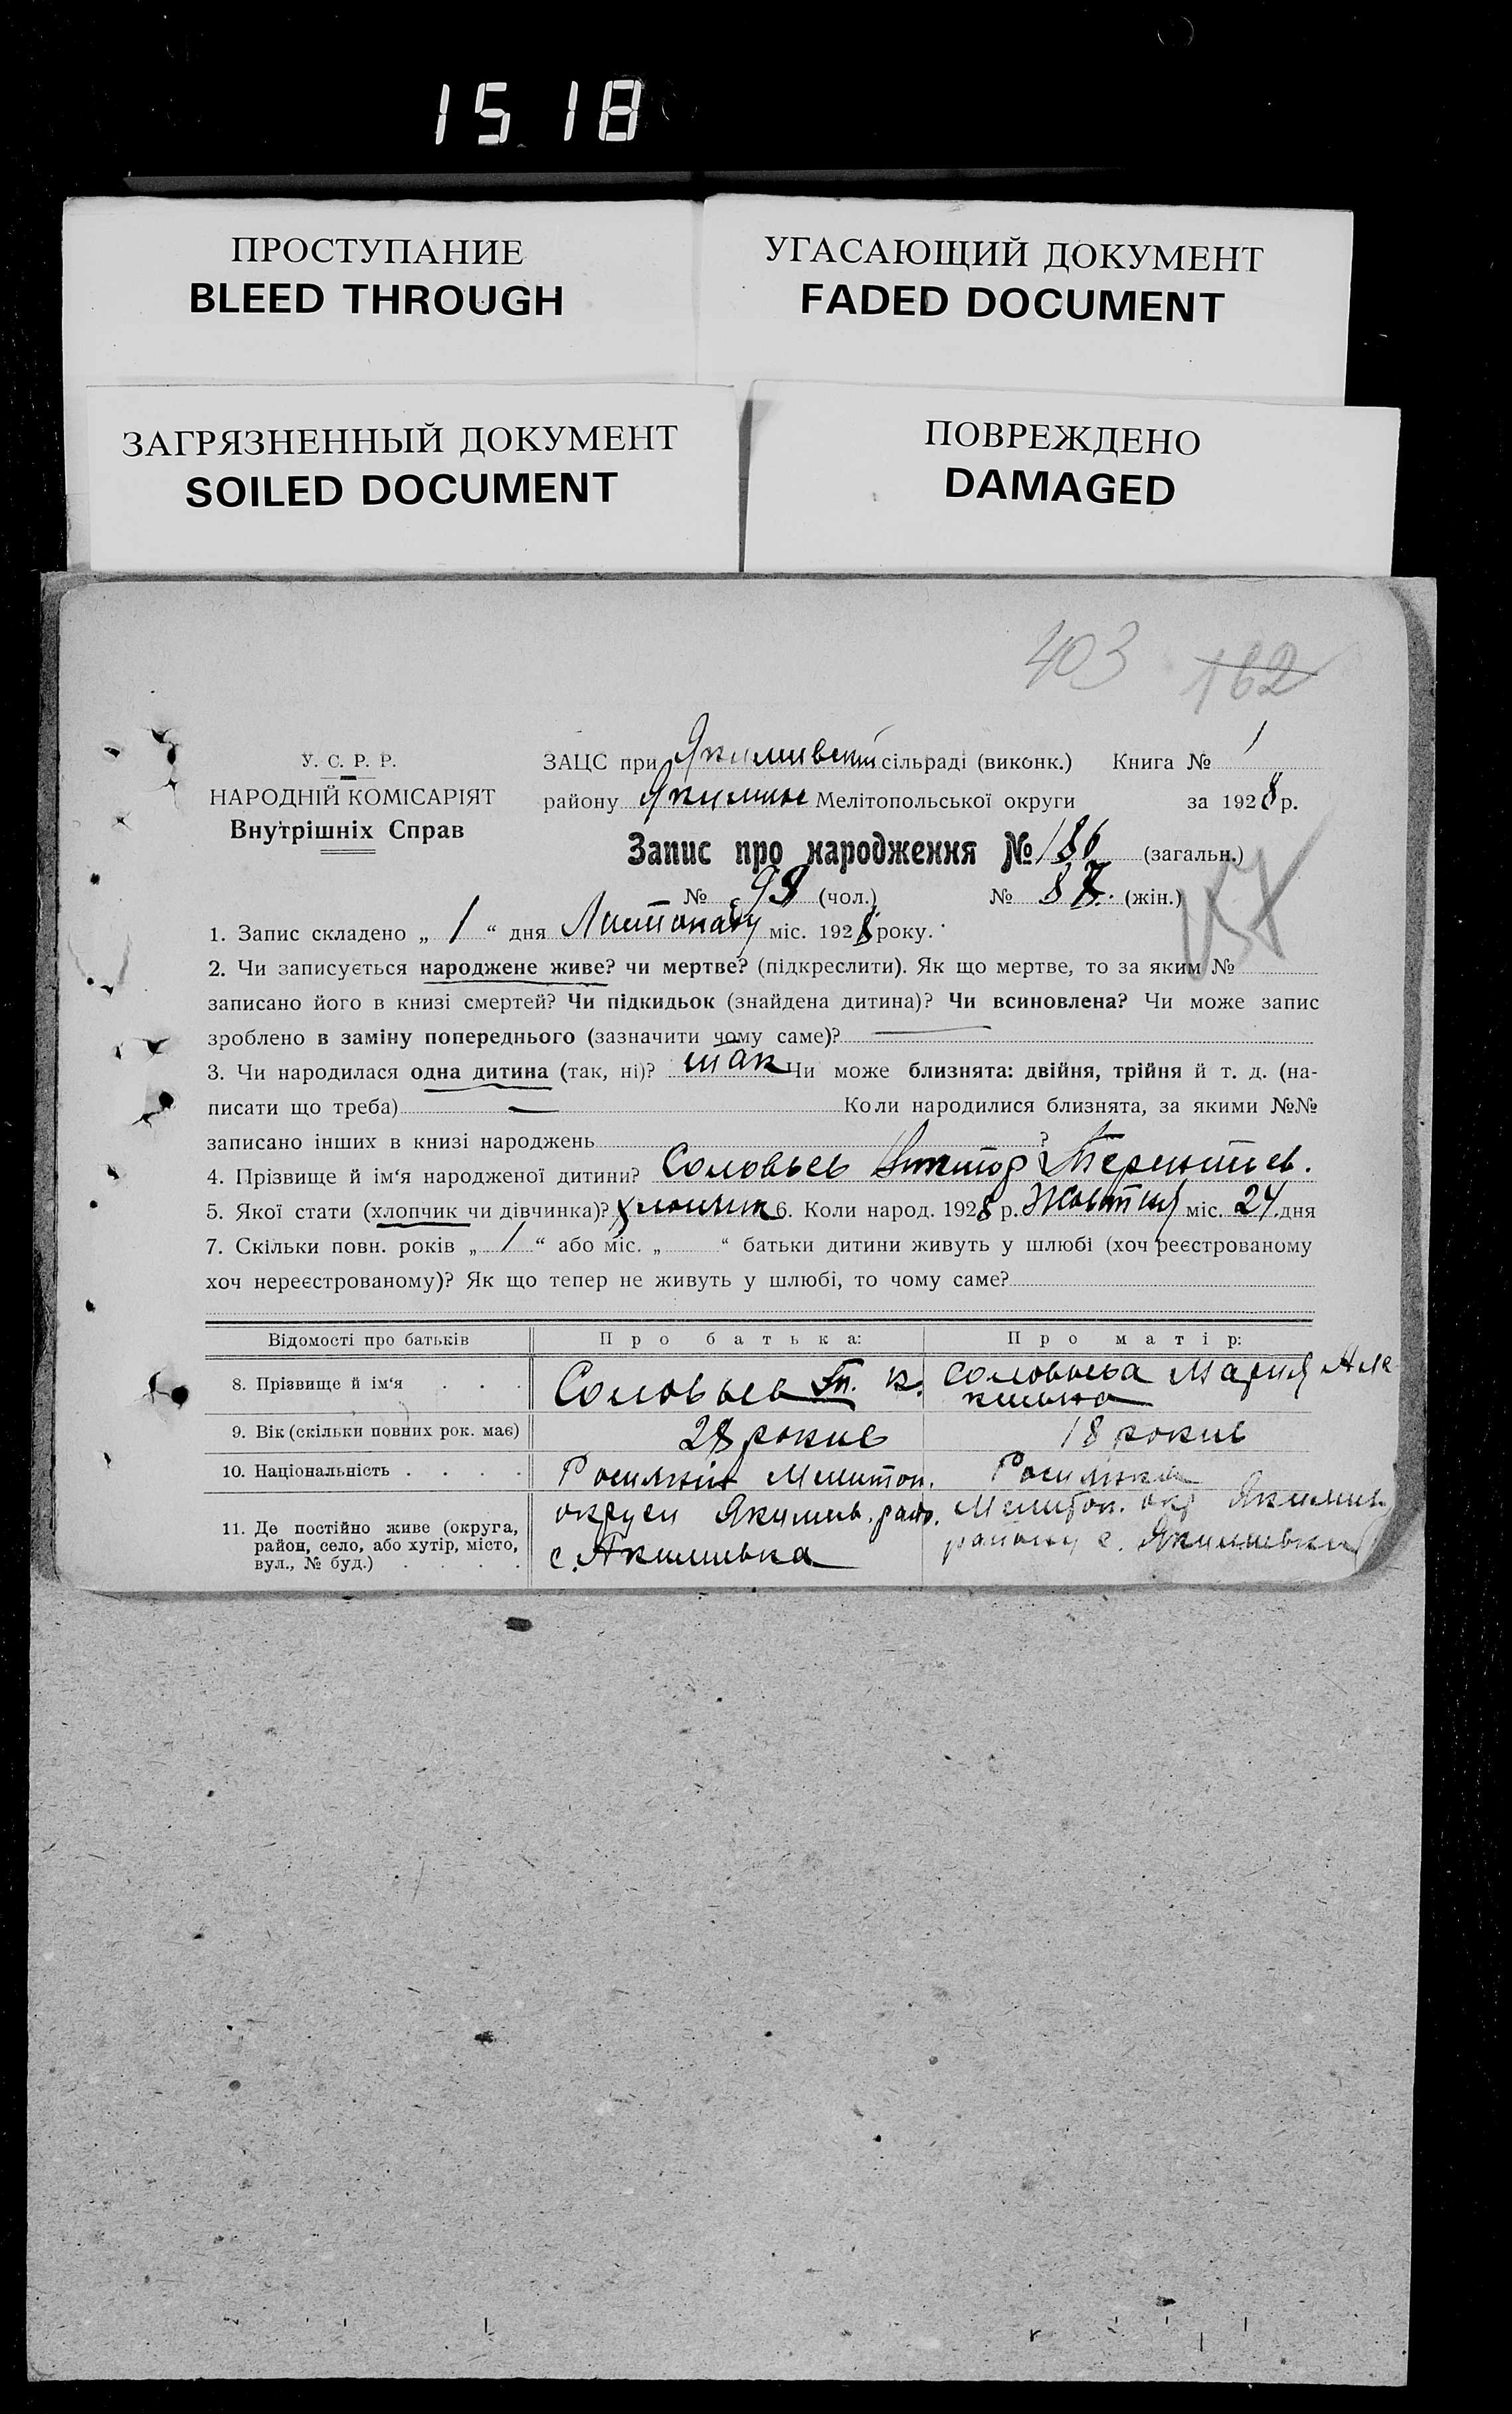 15 18
ПРОСТУПАНИЕ
BLEED THROUGH
УГАСАЮЩИЙ ДОКУМЕНТ
FADED DOCUMENT
ЗАГРЯЗНЕННЫЙ ДОКУМЕНТ
SOILED DOCUMENT
ПОВРЕЖДЕНО
DAMAGED
403 162
У. С. Р. Р.
НАРОДНІЙ КОМІСАРІЯТ
Внутрішніх Справ
ЗАЦС при Якимивский сільраді (виконк.) Книга № 1
району Якимив Мелітопольської округи за 1928 р.
Запис про народження № 186 (загальн.)
№ 98 (чол.) № 88 (жін.)
157
1. Запис складено „ 1 “ дня Листопаду міс. 1928 року.
2. Чи записується народжене живе? чи мертве? (підкреслити). Як що мертве, то за яким №
записано його в книзі смертей? Чи підкидьок (знайдена дитина)? Чи всиновлена? Чи може запис
зроблено в заміну попереднього (зазначити чому саме)? —
3. Чи народилася одна дитина (так, ні)? так Чи може близнята: двійня, трійня й т. д. (на-
писати що треба) — Коли народилися близнята, за якими №№
записано інших в книзі народжень ?
4. Прізвище й ім‘я народженої дитини? Соловьев Виктор Терентиев.
5. Якої стати (хлопчик чи дівчинка)? хлопчик 6. Коли народ. 1928 р. Жовтня міс. 24 дня
7. Скільки повн. років „ 1 “ або міс. „ “ батьки дитини живуть у шлюбі (хоч реєстрованому
хоч нереєстрованому)? Як що тепер не живуть у шлюбі, то чому саме?
Відомості про батьків Про батька: Про матір:
8. Прізвище й ім‘я . . . Соловьев Тп. К. Соловьева Мария
9. Вік (скільки повних рок. має) 28 рокив 18 рокив
10. Національність . . . . Росиянин Мелитоп. Росиянка
11. Де постійно живе (округа, район, село, або хутір, місто, вул., № буд.) . . . .
округи Якимив. райо. с. Якимивка
Мелитоп. окр Якимив району с. Якимивка